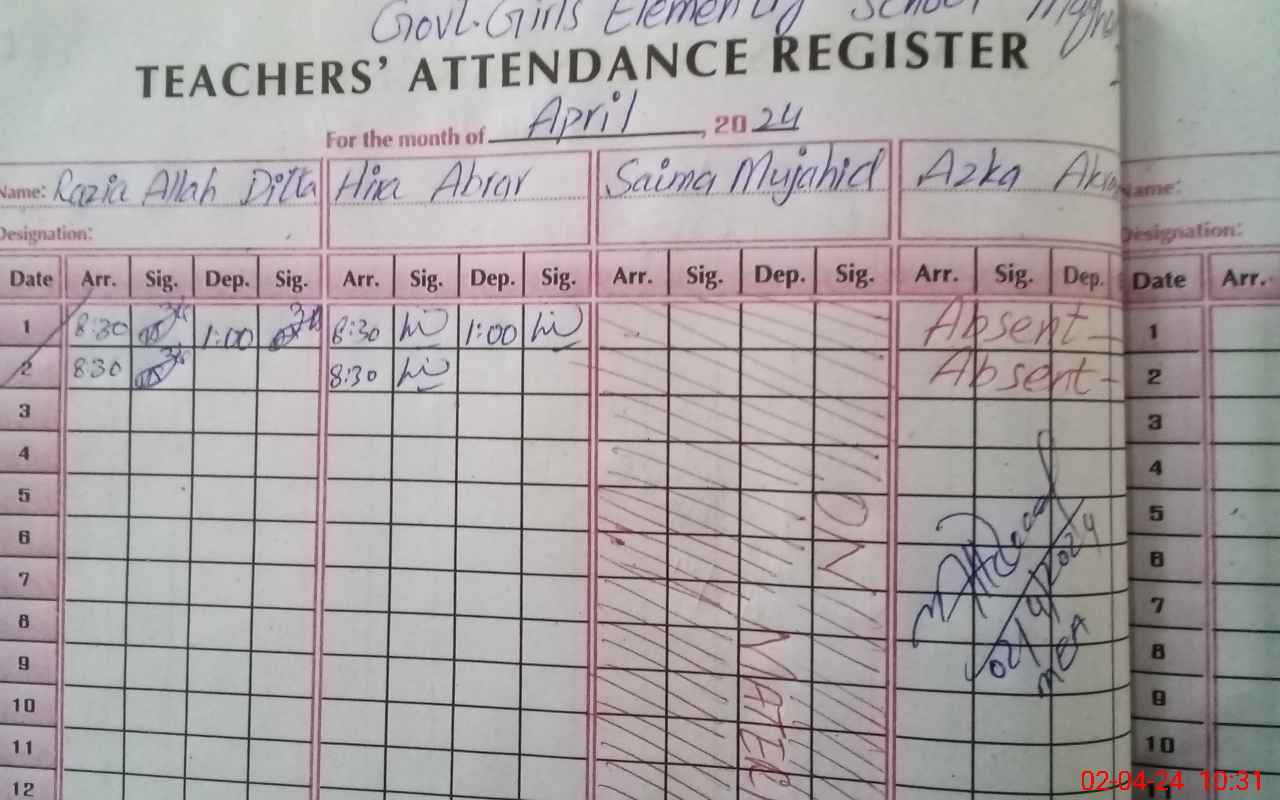 Govt. Girls Elementary School
TEACHERS' ATTENDANCE REGISTER
For the month of April, 2024
Name: Razia Allah Ditta Hira Abrar Saima Mujahid Azka Name:
Designation: Designation:
Date Arr. Sig. Dep. Sig. Arr. Sig. Dep. Sig. Arr. Sig. Dep. Sig. Arr. Sig. Dep. Date Arr.
1 8:30 1:00 8:30 1:00 Absent 1
2 830 8:30 Absent 2
3 3
4 4
5 ON 5
6 6
7 7
8 02/4/2024 8
9 MATER MEA 9
10 10
11 11
12
02-04-24 10:31